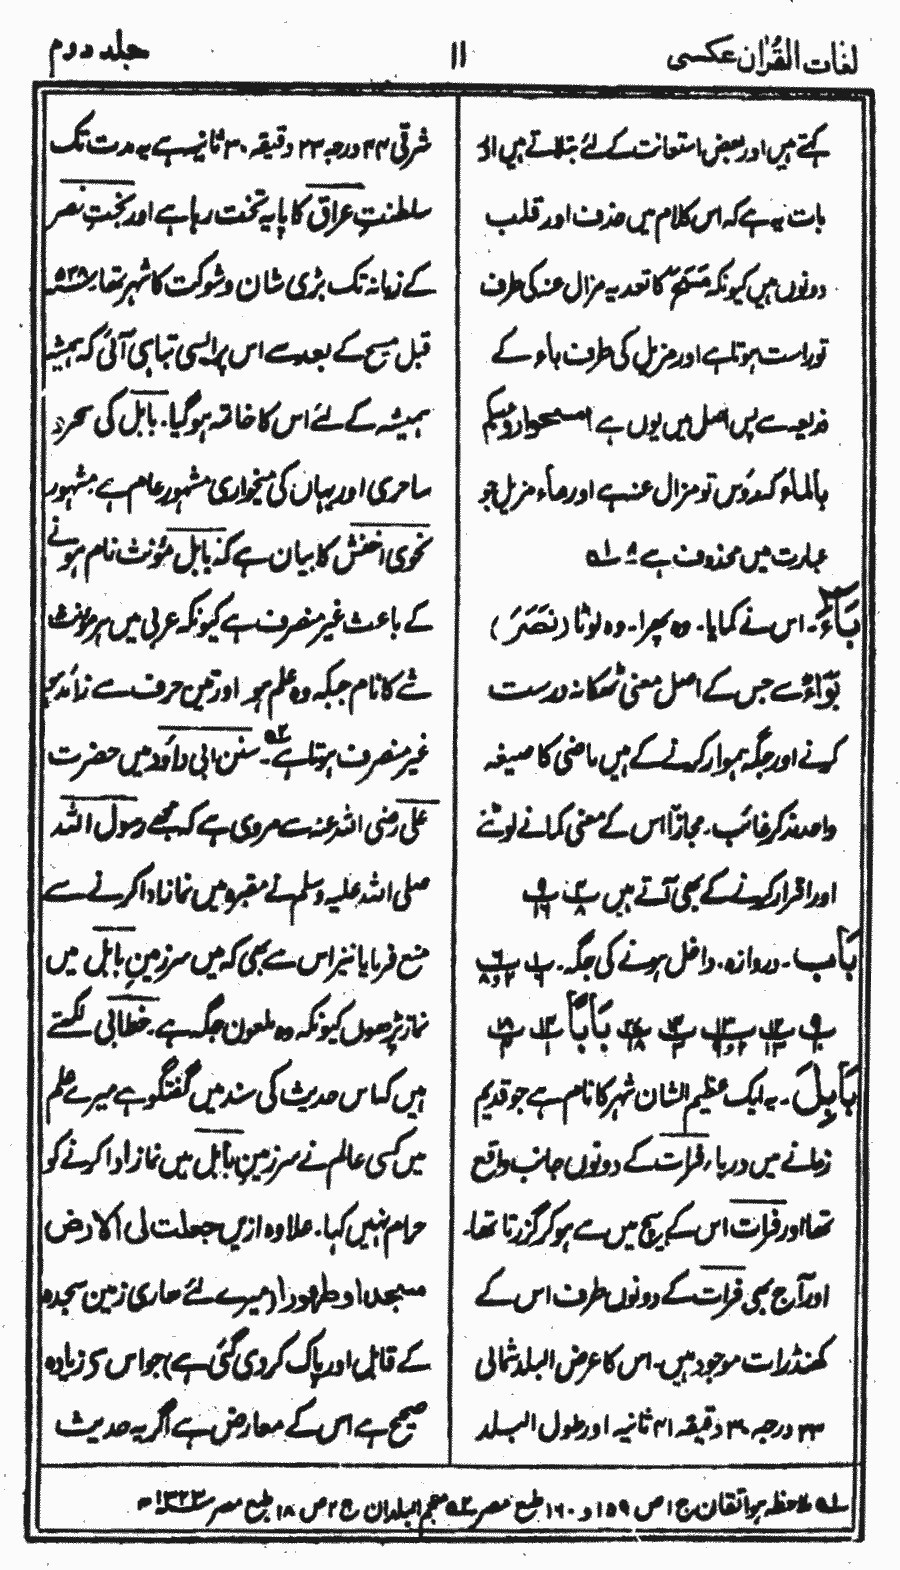 لغات القرآن عکسی
۱۱
جلد دوم
کہتے ہیں اور بعض استعانت کے لئے بتلاتے ہیں اگر
بات یہ ہے کہ اس کلام میں حذف اور قلب
دونوں ہیں کیونکہ کا تعدیہ مزال عنہ کی طرف
توراست ہوتا ہے اور مزیل کی طرف باء کے
ذریعہ سے پس اصل میں یوں ہے امسحوا رءوسکم
بالماء کہ رءوس تو مزال عنہ ہے اور ماء مزیل جو
عبارت میں محذوف ہے
بَآءَ۔ اس نے کمایا۔ وہ پھرا۔ وہ لوٹا (نَصَرَ)
بَوَّاءٌ سے جس کے اصل معنی ٹھکانہ درست
کرنے اور جگہ ہموار کرنے کے ہیں ماضی کا صیغہ
واحد مذکر غائب۔ مجازاً اس کے معنی کمانے لوٹنے
اور اقرار کرنے کے بھی آتے ہیں
بَاب۔ دروازہ۔ داخل ہونے کی جگہ۔
بَاباً
بَابِلَ۔ یہ ایک عظیم الشان شہر کا نام ہے جو قدیم
زمانے میں دریاء فرات کے دونوں جانب واقع
تھا اور فرات اس کے بیچ میں سے ہو کر گزرتا تھا۔
اور آج بھی فرات کے دونوں طرف اس کے
کھنڈرات موجود ہیں۔ اس کا عرض البلد شمالی
۳۲ درجہ ۳۰ دقیقہ ۳۱ ثانیہ اور طول البلد
شرقی ۴۴ درجہ ۲۳ دقیقہ ۳۰ ثانیہ ہے یہ مدت تک
سلطنتِ عراق کا پایہ تخت رہا ہے اور بختِ نصر
کے زمانہ تک بڑی شان و شوکت کا شہر تھا ۵۳۸
قبل مسیح کے بعد سے اس پر ایسی تباہی آئی کہ ہمیشہ
ہمیشہ کے لئے اس کا خاتمہ ہو گیا۔ بابل کی سحر و
ساحری اور یہاں کی میخواری مشہور عام ہے مشہور
نحوی اخفش کا بیان ہے کہ بابل مؤنث نام ہونے
کے باعث غیر منصرف ہے کیونکہ عربی میں ہر مؤنث
شے کا نام جبکہ وہ علم ہو اور تین حرف سے زائد ہو
غیر منصرف ہوتا ہے ۲ سنن ابی داؤد میں حضرت
علی رضی اللہ عنہ سے مروی ہے کہ مجھے رسول اللہ
صلی اللہ علیہ وسلم نے مقبرہ میں نماز ادا کرنے سے
منع فرمایا نیز اس سے بھی کہ میں سرزمینِ بابل میں
نماز پڑھوں کیونکہ وہ ملعون جگہ ہے۔ خطابی لکھتے
ہیں کہ اس حدیث کی سند میں گفتگو ہے میرے علم
میں کسی عالم نے سرزمینِ بابل میں نماز ادا کرنے کو
حرام نہیں کہا۔ علاوہ ازیں جعلت لی الارض
مسجدا و طهورا (میرے لئے ساری زمین سجدہ
کے قابل اور پاک کردی گئی ہے) جو اس سے زیادہ
صحیح ہے اس کے معارض ہے اگر یہ حدیث
۱ ملاحظہ ہو اتقان ج ۱ ص ۱۵۹ و ۱۶۰ طبع مصر ۲ معجم البلدان ج ۲ ص ۱۸ طبع مصر ۱۳۲۳